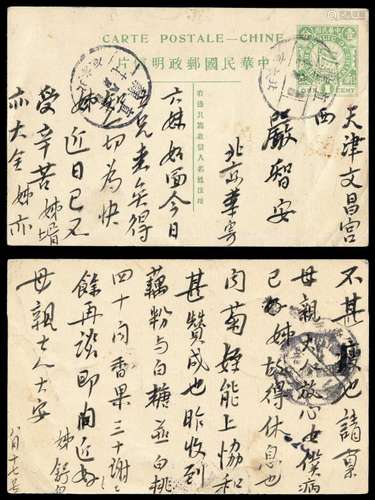 CARTE POSTALE — CHINE.
中華民國郵政明信片
右邊只寫收信人名姓住址
ONE
1
CENT
天津文昌宮
西
嚴智安
北京華寄
六妹如面今日
切為快
姊近日已不
受辛苦姊
亦大全姊亦
不甚瘦也請稟
母親大人放心女僕病
已好姊故得休息也
向菊姪能上協和
甚贊成也昨收到
藕粉與白糖並白桃
四十问香果三十謝之
餘再談即问近好
母親大人大安
八月十七号